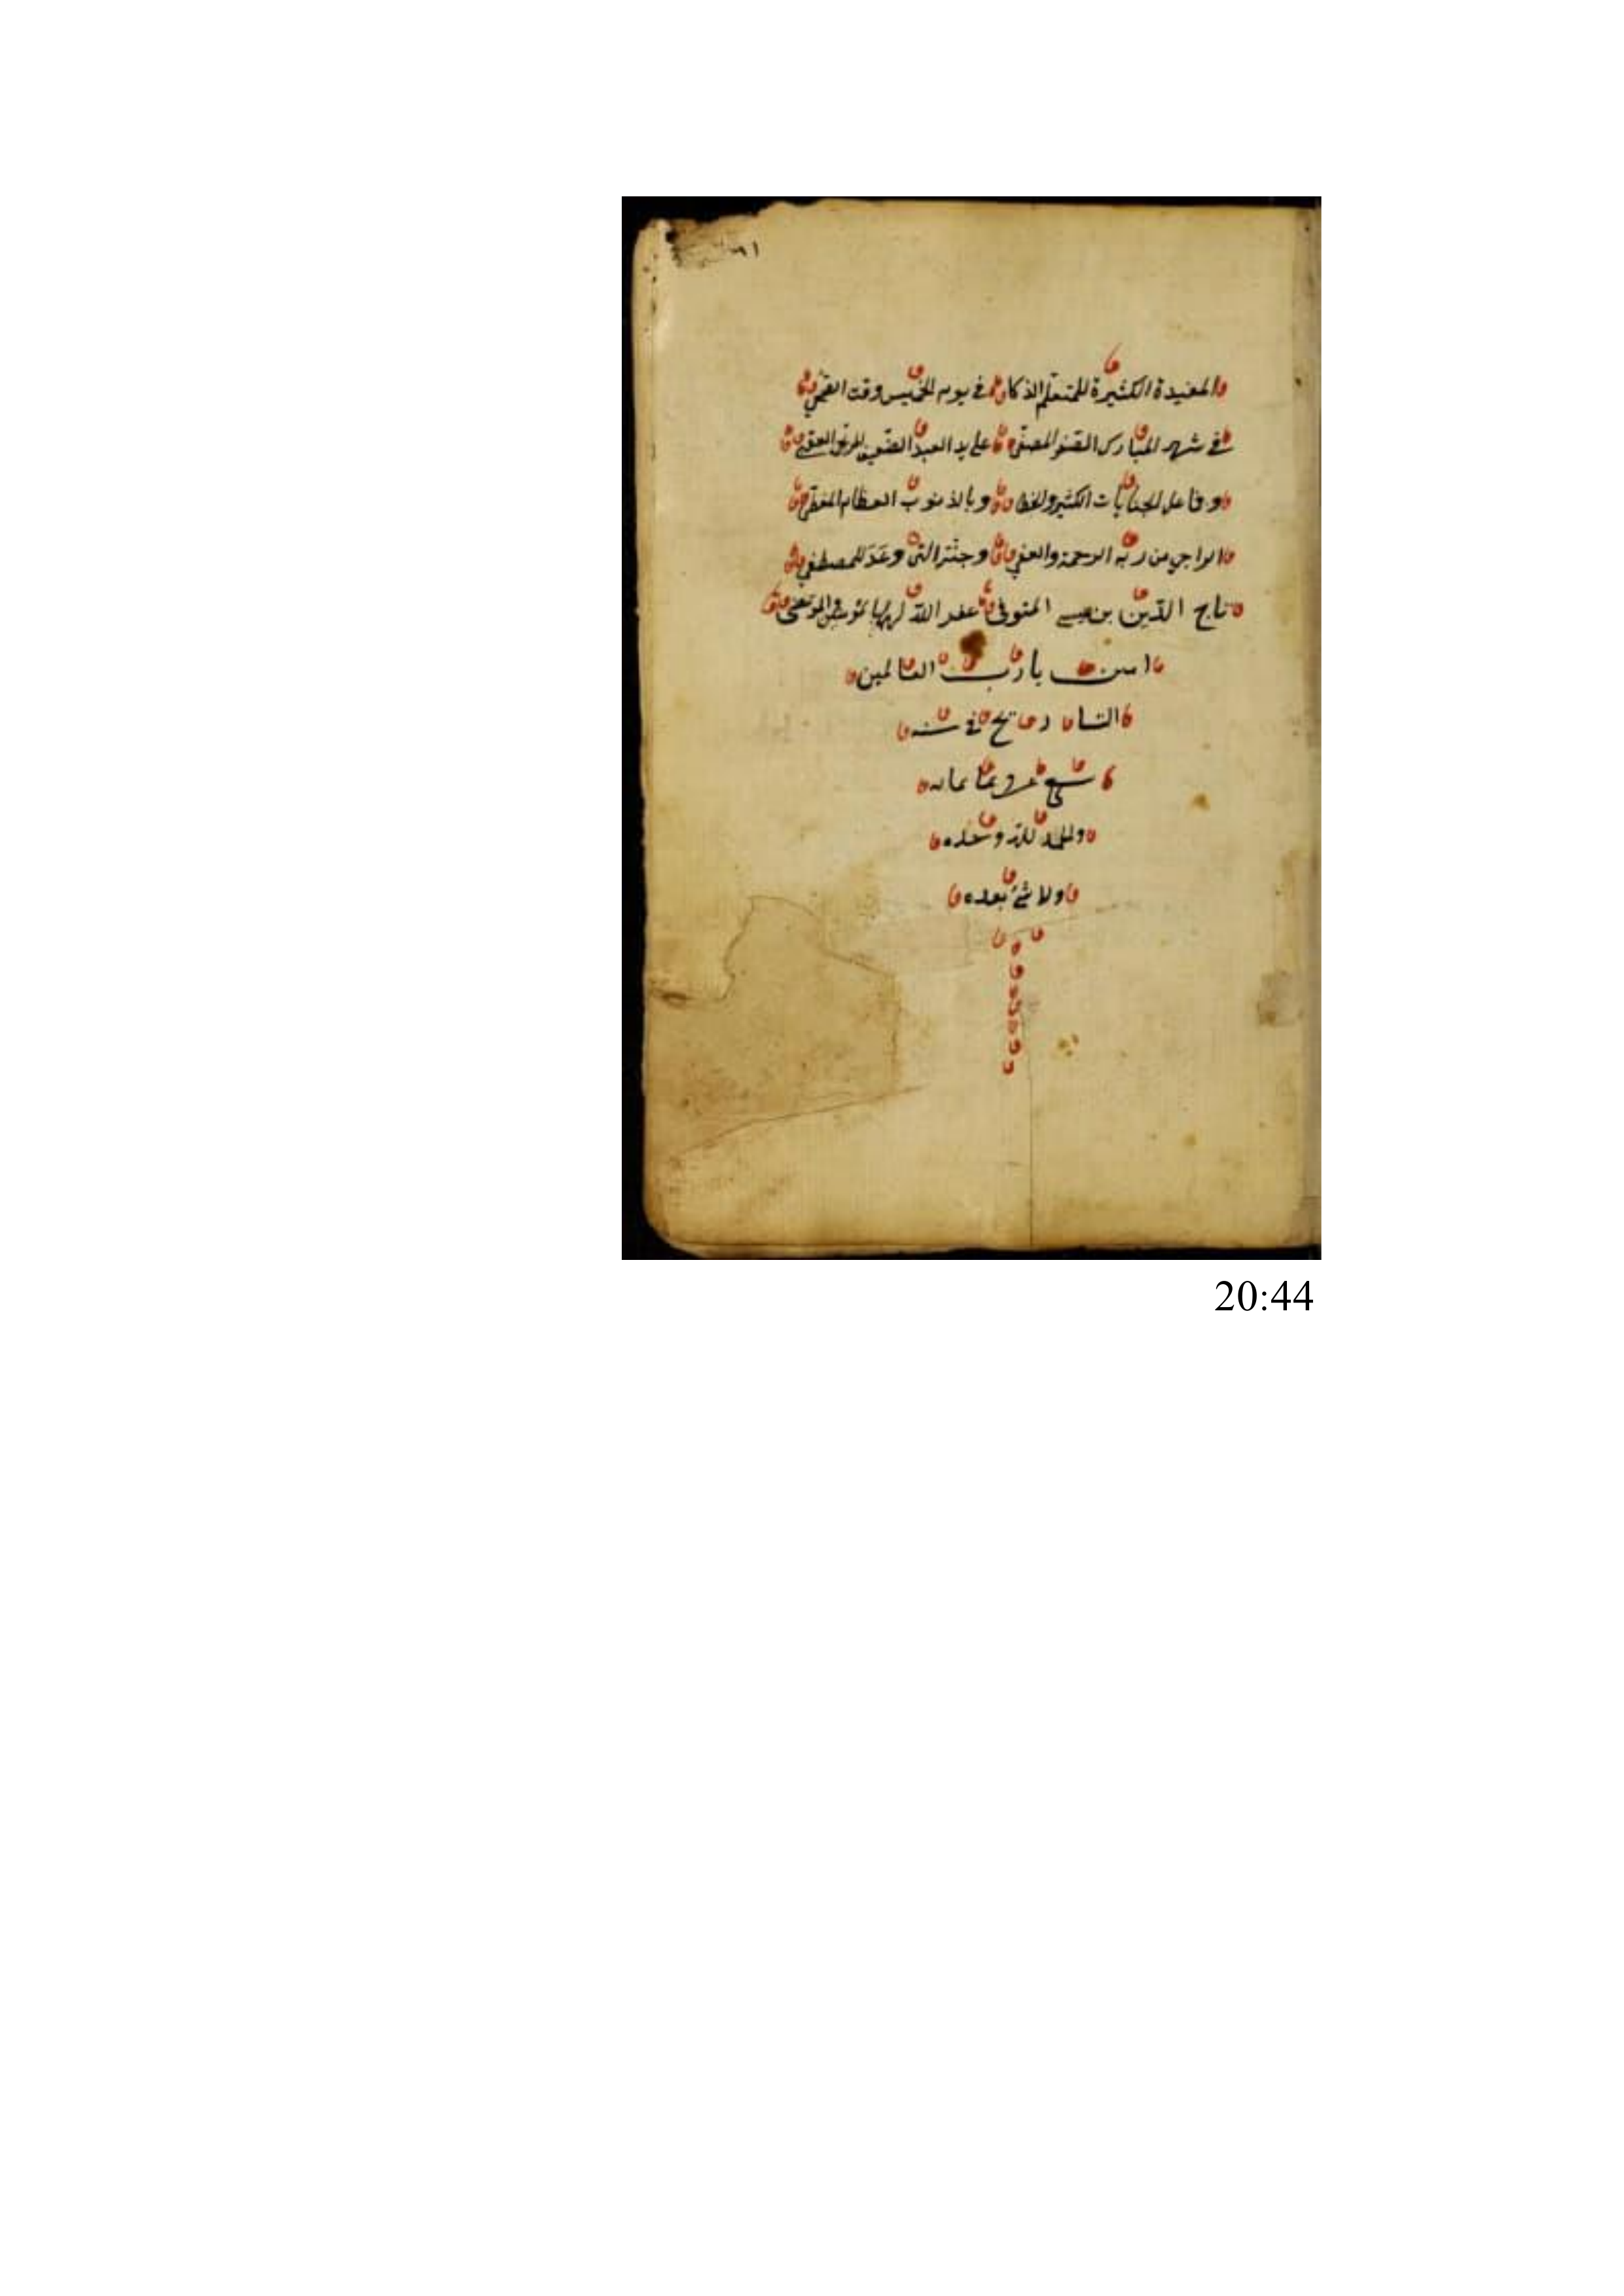 ٩١
المفيدة الكثيرة للمتعلم الذكا في يوم الخميس وقت الضحى
في شهر المبارك الصفر المصفى على يد العبد الضعيف
وفاعل الجنايات الكثير والخطا وبالذنوب العظام المغطى
الراجي من ربه الرحمة والعفى وجنته التى وعد للمصطفى
تاج الدين بن عيسى المتوفى غفر الله لهما
امين يا رب العالمين
فى سنه
والحمد لله وحده
ولا شئ بعده
20:44